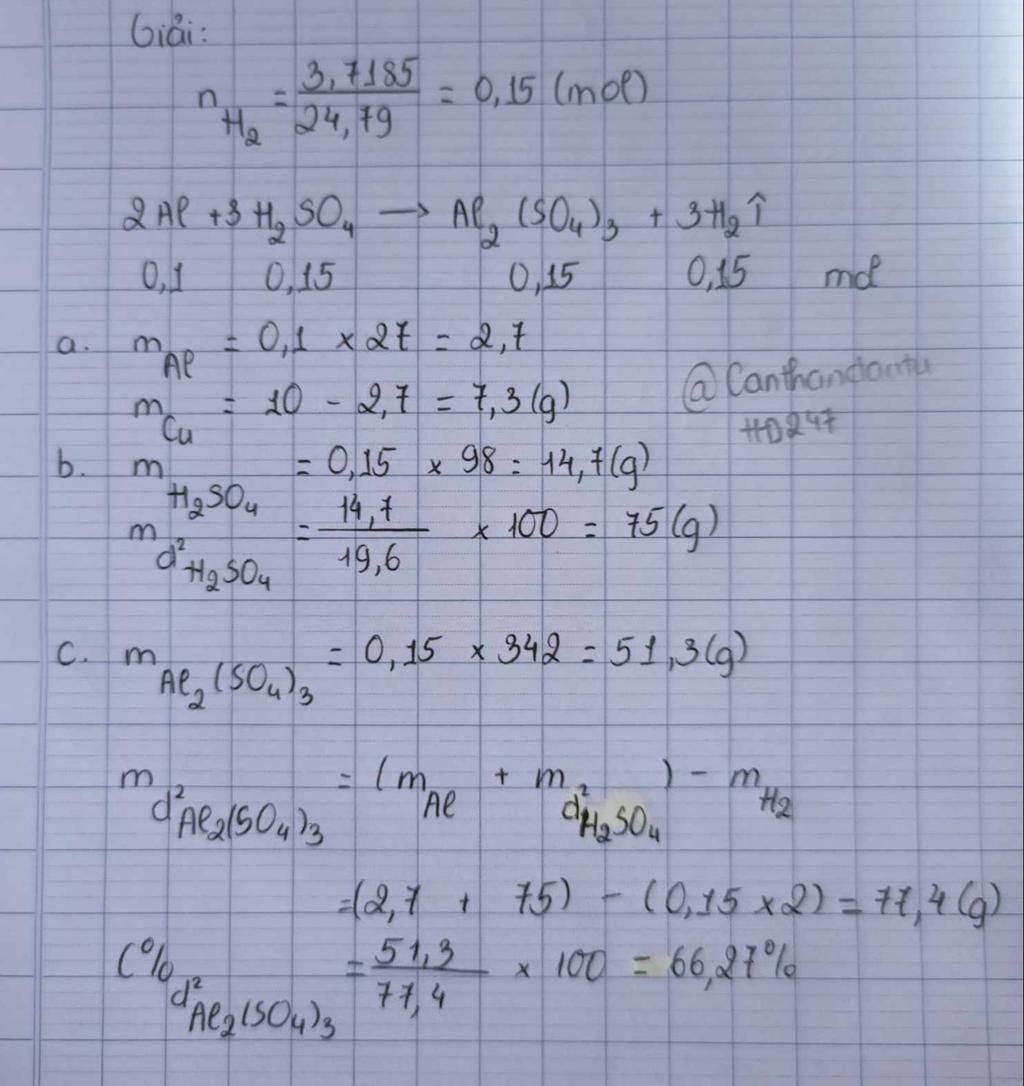 Giải:
n H₂ = 3,7185 / 24,79 = 0,15 (mol)
2Al + 3H₂SO₄ → Al₂(SO₄)₃ + 3H₂↑
0,1 0,15 0,15 0,15 mol
a. m Al = 0,1 × 27 = 2,7
m Cu = 10 - 2,7 = 7,3 (g)
@Canthandantu
HD247
b. m H₂SO₄ = 0,15 × 98 = 14,7 (g)
m d² H₂SO₄ = 14,7 / 19,6 × 100 = 75 (g)
c. m Al₂(SO₄)₃ = 0,15 × 342 = 51,3 (g)
m d² Al₂(SO₄)₃ = (m Al + m d² H₂SO₄) - m H₂
= (2,7 + 75) - (0,15 × 2) = 77,4 (g)
C% d² Al₂(SO₄)₃ = 51,3 / 77,4 × 100 = 66,27%